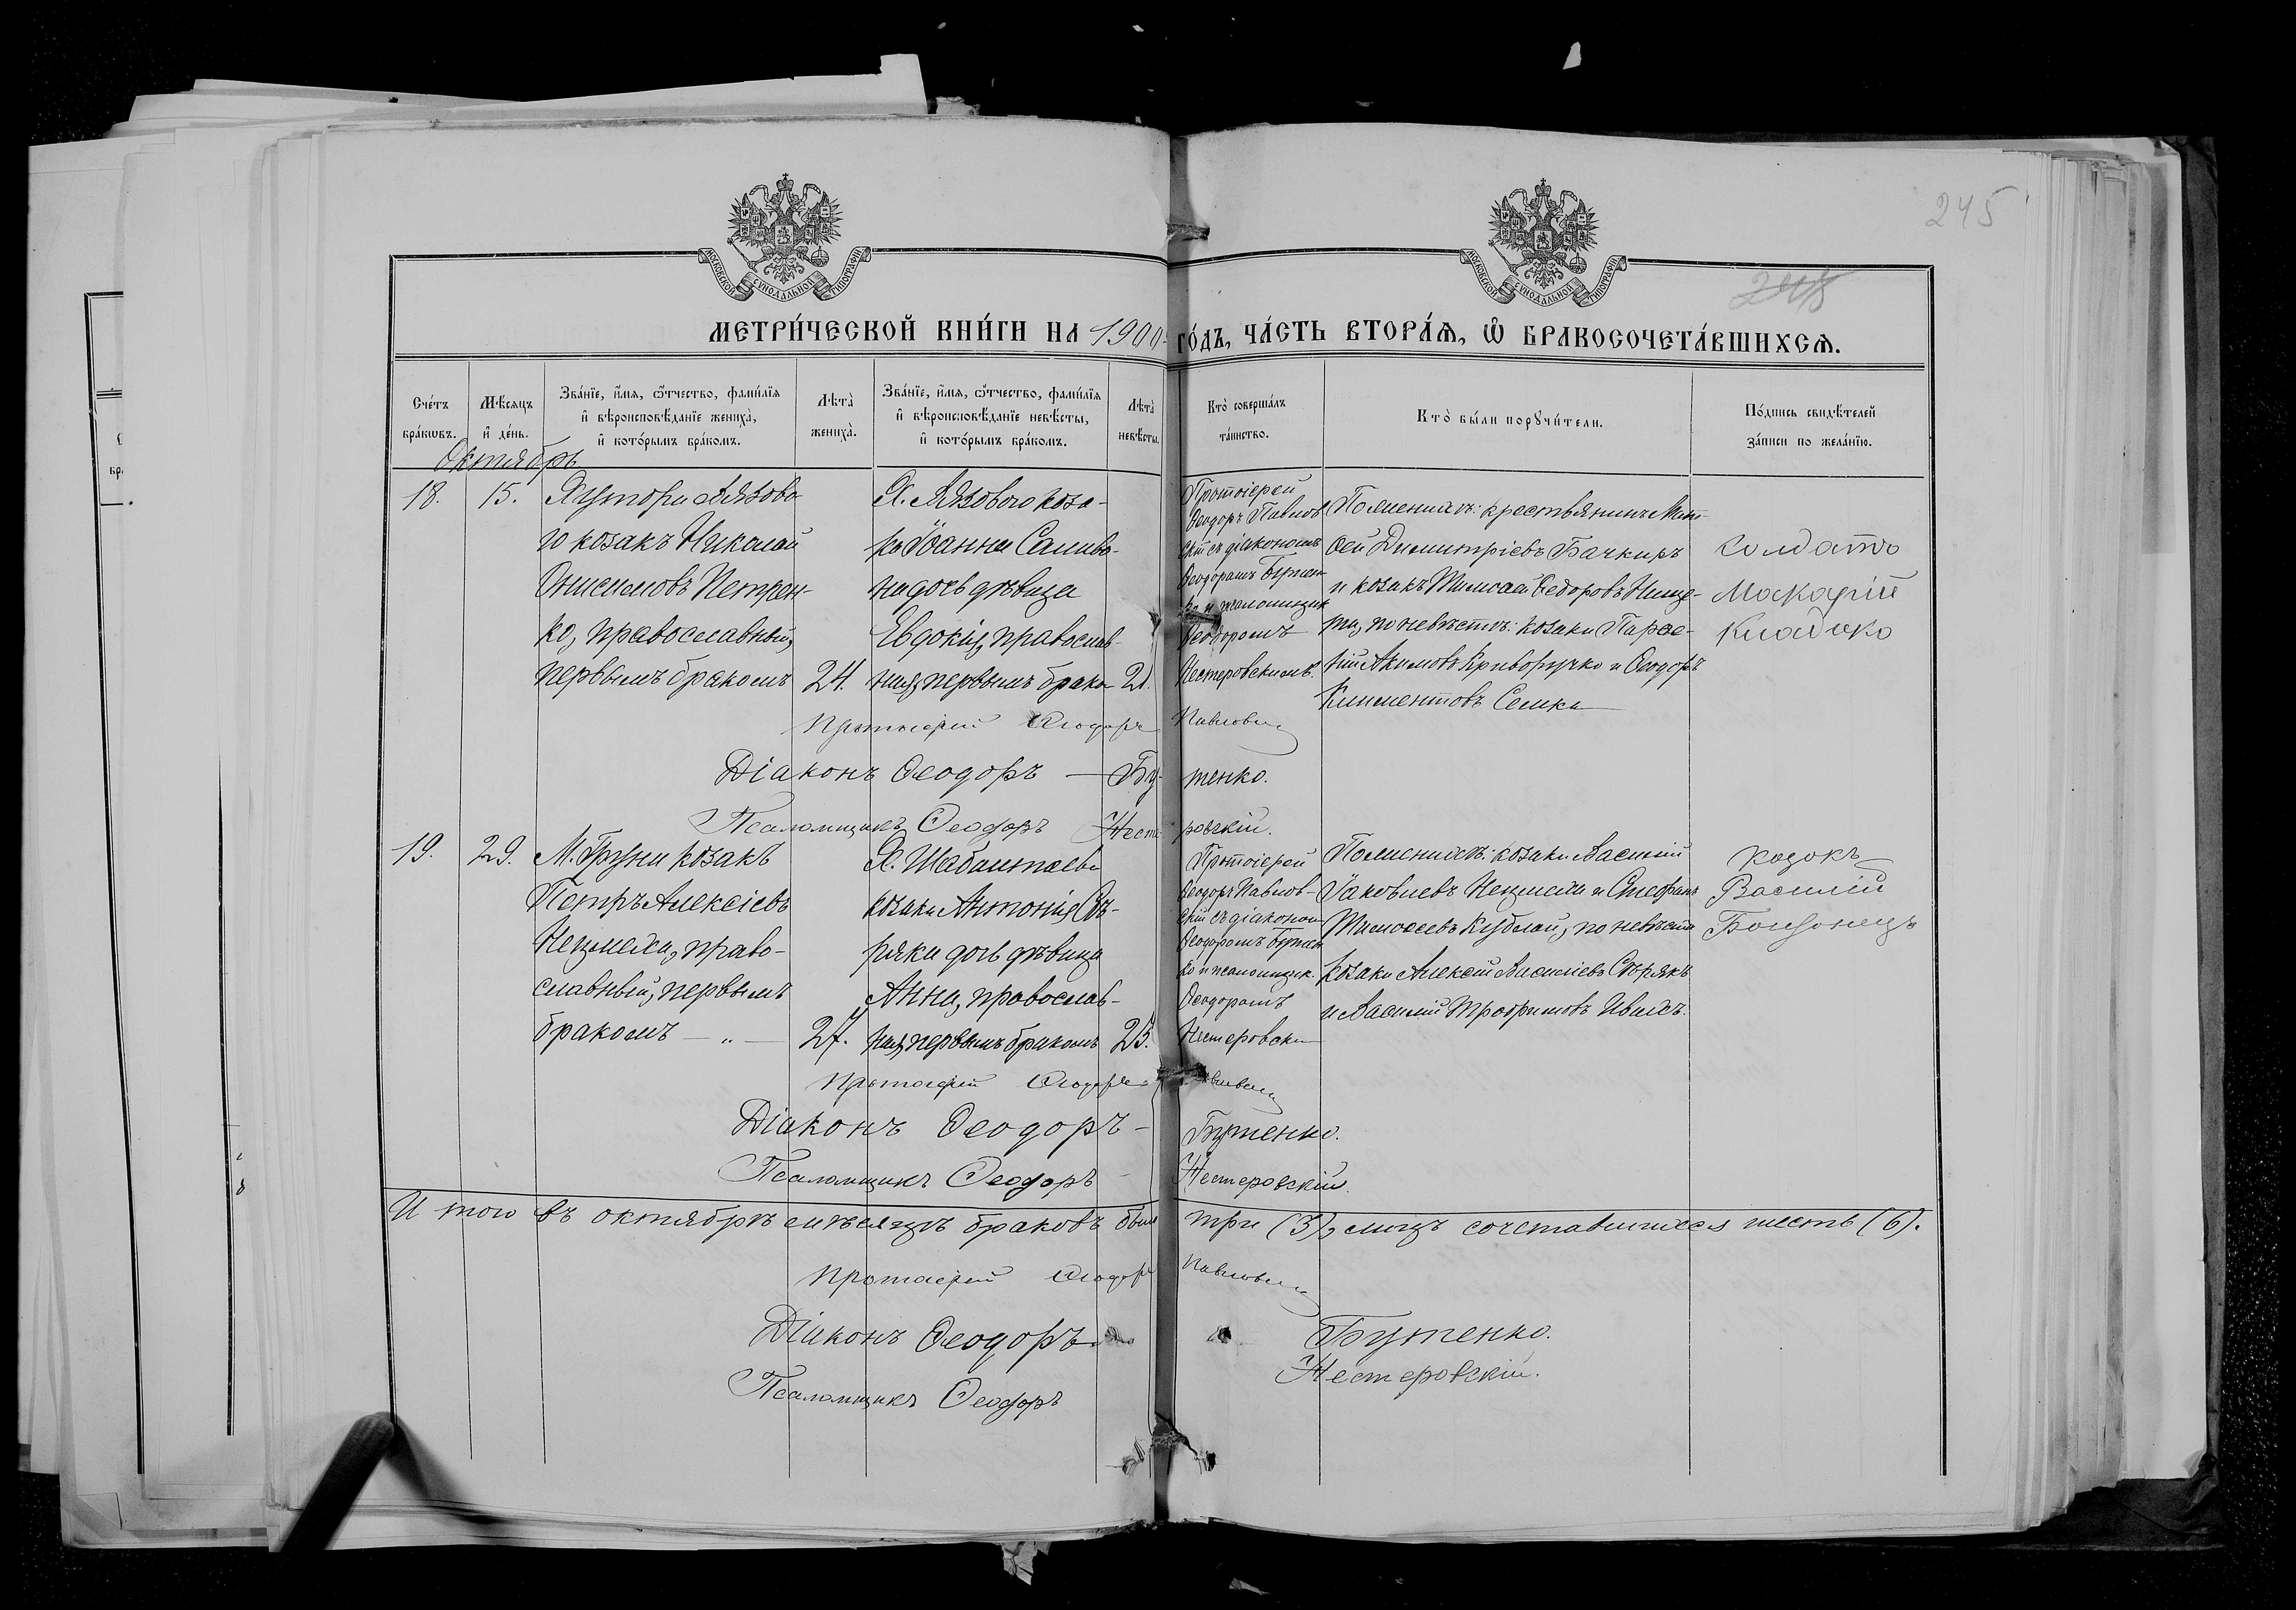 245
МОСКОВСКОЙ СУНОДАЛЬНОЙ ТИПОГРАФІИ
МОСКОВСКОЙ СУНОДАЛЬНОЙ ТИПОГРАФІИ
МЕТРИ́ЧЕСКОЙ КНИ́ГИ НА 1900 ГО́ДЪ, ЧА́СТЬ ВТОРА́Ѧ, Ѡ҆ БРАКОСОЧЕТА́ВШИХСѦ.
Сче́тъ бра́кѡвъ.
Мѣ́сѧцъ и҆ де́нь.
Зва́нїе, и҆́мѧ, ѻ҆́тчество, фами́лїѧ и҆ вѣроисповѣ́данїе жениха̀, и҆ кото́рымъ бра́комъ.
Лѣта̀ жениха̀.
Зва́нїе, и҆́мѧ, ѻ҆́тчество, фами́лїѧ и҆ вѣроисповѣ́данїе невѣ́сты, и҆ кото́рымъ бра́комъ.
Лѣта̀ невѣ́сты.
Кто̀ соверша́лъ та́инство.
Кто̀ бы́ли порꙋчи́тели.
По́дпись свидѣ́телей за́писи по жела́нїю.
Октябрь
18.
15.
Хутора Лязово-
го козакъ Николай
Онисимовъ Петрен-
ко, православный,
первымъ бракомъ
24.
Х. Лязового коза-
ка Іоанна Саливо-
на дочь дѣвица
Евдокія, православ-
ная, первымъ брако-
21.
Протоіерей
Ѳеодоръ Павлов-
скій съ діакономъ
Ѳеодоромъ Бутен-
ко и псаломщик.
Ѳеодоромъ
Нестеровскимъ.
По женихѣ: крестьянинъ Мат-
ѳей Димитріевъ Бачкиръ
и козакъ Тимоѳей Ѳедоровъ Нище-
та, по невѣстѣ: козаки Парѳе-
ній Акимовъ Криворучко и Ѳеодоръ
Климентовъ Семка
Солдатъ
Макарій
Протоіерей Ѳеодоръ Павловскій
Діаконъ Ѳеодоръ — Бутенко.
Псаломщикъ Ѳеодоръ Нестеровскій.
19.
29.
М. Груни козакъ
Петръ Алексіевъ
Нецмеха, право-
славный, первымъ
бракомъ — „ —
27.
Х. Шабалтаева
козака Антонія Сѣ-
ряка дочь дѣвица
Анна, православ-
ная, первымъ бракомъ
23.
Протоіерей
Ѳеодоръ Павлов-
скій съ діаконом
Ѳеодоромъ Бутен
ко и псаломщик.
Ѳеодоромъ
Нестеровски
По женихѣ: козаки Василій
Іаковлевъ Нецмеха и Стефанъ
Тимоѳеевъ Кублай, по невѣстѣ
козаки Алексій Василіевъ Сѣрякъ
и Василій Трофимовъ Ивахъ.
козакъ
Василій
Протоіерей Ѳеодоръ Павловскій
Діаконъ Ѳеодоръ — Бутенко.
Псаломщикъ Ѳеодоръ Нестеровскій.
И того въ октябрѣ мѣсяцѣ браковъ было три (3), лицъ сочетавшихся шесть (6).
Протоіерей Ѳеодоръ Павловскій
Діаконъ Ѳеодоръ Бутенко.
Псаломщикъ Ѳеодоръ Нестеровскій.